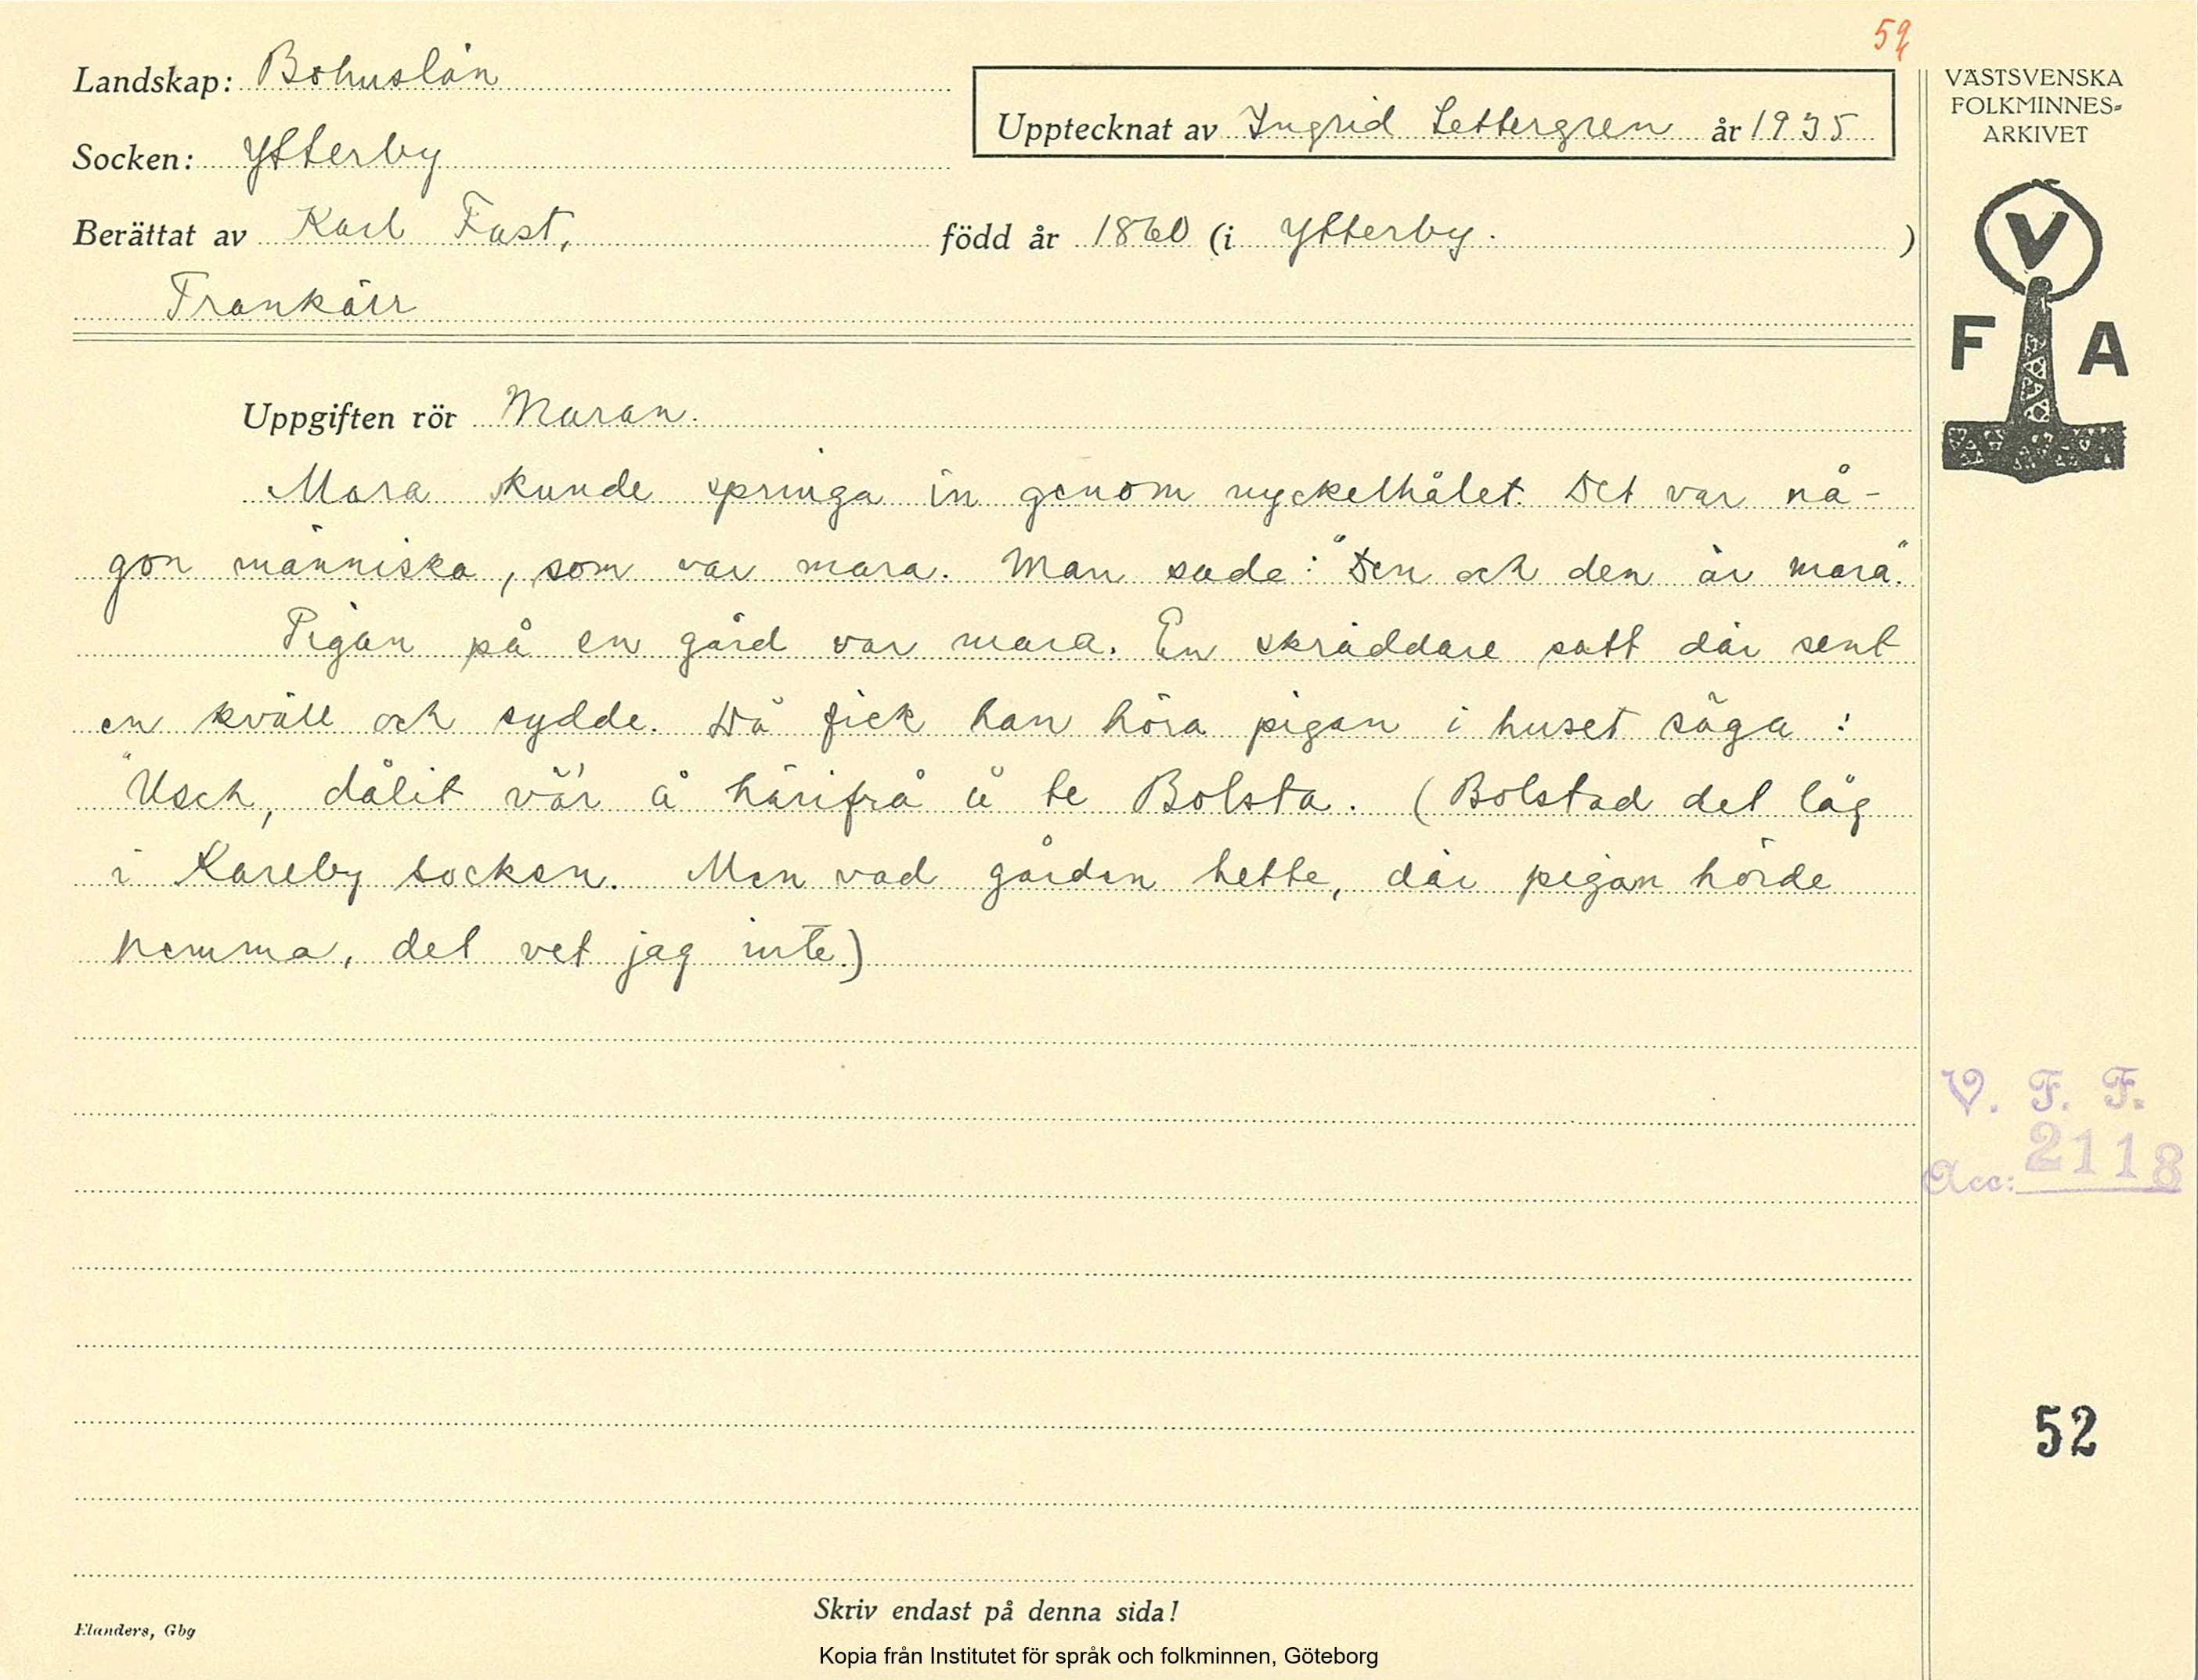 52
Landskap: Bohuslän
Socken: Ytterby
Upptecknat av Ingrid Settergren år 1935
Berättat av Karl Fast, född år 1860 (i Ytterby. )
Trankärr
VÄSTSVENSKA
FOLKMINNES-
ARKIVET
V
F A
Uppgiften rör Maran.
Mara kunde springa in genom nyckelhålet. Det var nå-
gon människa, som var mara. Man sade: "Den och den är mara".
Pigan på en gård var mara. En skräddare satt där sent
en kväll och sydde. Då fick han höra pigan i huset säga:
"Usch, dålit vär å härifrå å te Bolsta. (Bolstad det låg
i Kareby socken. Men vad gården hette, där pigan hörde
hemma, det vet jag inte.)
V. F. F.
Acc: 2118
52
Skriv endast på denna sida!
Elanders, Gbg
Kopia från Institutet för språk och folkminnen, Göteborg